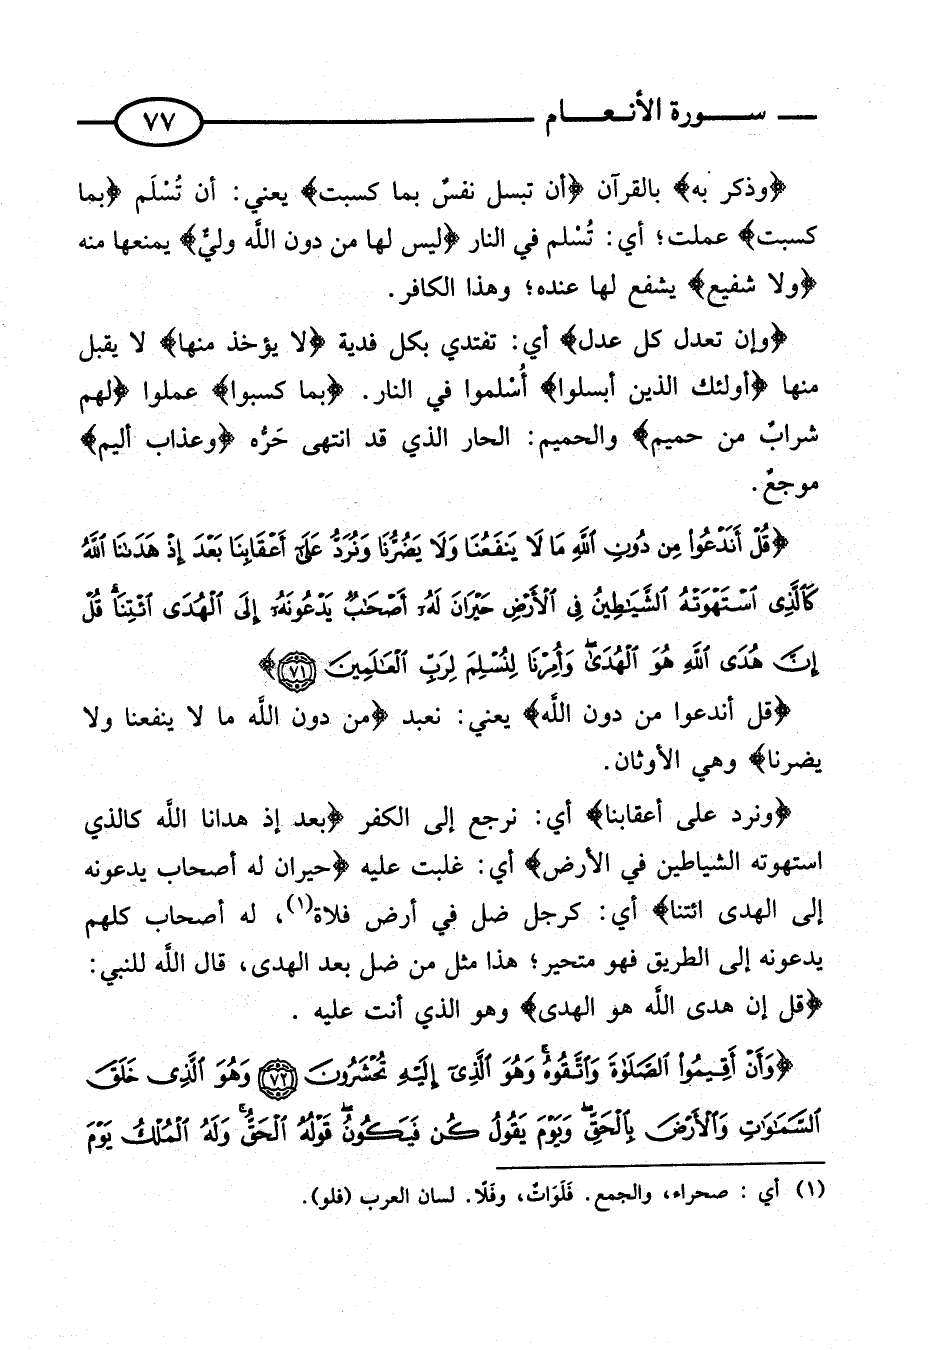 سورة الأنعام
٧٧
﴿وذكر به﴾ بالقرآن ﴿أن تبسل نفسٌ بما كسبت﴾ يعني: أن تُسْلَم ﴿بما
كسبت﴾ عملت؛ أي: تُسْلم في النار ﴿ليس لها من دون اللَّه وليٌّ﴾ يمنعها منه
﴿ولا شفيع﴾ يشفع لها عنده؛ وهذا الكافر.
﴿وإن تعدل كل عدل﴾ أي: تفتدي بكل فدية ﴿لا يؤخذ منها﴾ لا يقبل
منها ﴿أولئك الذين أبسلوا﴾ أُسْلموا في النار. ﴿بما كسبوا﴾ عملوا ﴿لهم
شرابٌ من حميم﴾ والحميم: الحار الذي قد انتهى حَرُّه ﴿وعذاب أليم﴾
موجعٌ.
﴿قُلْ أَنَدْعُواْ مِن دُونِ ٱللَّهِ مَا لَا يَنفَعُنَا وَلَا يَضُرُّنَا وَنُرَدُّ عَلَىٰٓ أَعْقَابِنَا بَعْدَ إِذْ هَدَىٰنَا ٱللَّهُ
كَٱلَّذِى ٱسْتَهْوَتْهُ ٱلشَّيَٰطِينُ فِى ٱلْأَرْضِ حَيْرَانَ لَهُۥٓ أَصْحَٰبٌ يَدْعُونَهُۥٓ إِلَى ٱلْهُدَى ٱئْتِنَا ۗ قُلْ
إِنَّ هُدَى ٱللَّهِ هُوَ ٱلْهُدَىٰ ۖ وَأُمِرْنَا لِنُسْلِمَ لِرَبِّ ٱلْعَٰلَمِينَ ٧١﴾
﴿قل أندعوا من دون اللَّه﴾ يعني: نعبد ﴿من دون اللَّه ما لا ينفعنا ولا
يضرنا﴾ وهي الأوثان.
﴿ونرد على أعقابنا﴾ أي: نرجع إلى الكفر ﴿بعد إذ هدانا اللَّه كالذي
استهوته الشياطين في الأرض﴾ أي: غلبت عليه ﴿حيران له أصحاب يدعونه
إلى الهدى ائتنا﴾ أي: كرجل ضل في أرض فلاة(١)، له أصحاب كلهم
يدعونه إلى الطريق فهو متحير؛ هذا مثل من ضل بعد الهدى، قال اللَّه للنبي:
﴿قل إن هدى اللَّه هو الهدى﴾ وهو الذي أنت عليه .
﴿وَأَنْ أَقِيمُواْ ٱلصَّلَوٰةَ وَٱتَّقُوهُ ۚ وَهُوَ ٱلَّذِىٓ إِلَيْهِ تُحْشَرُونَ ٧٢ وَهُوَ ٱلَّذِى خَلَقَ
ٱلسَّمَٰوَٰتِ وَٱلْأَرْضَ بِٱلْحَقِّ ۖ وَيَوْمَ يَقُولُ كُن فَيَكُونُ ۖ قَوْلُهُ ٱلْحَقُّ ۚ وَلَهُ ٱلْمُلْكُ يَوْمَ
(١) أي : صحراء، والجمع. فَلَوَاتٌ، وفَلًا. لسان العرب (فلو).